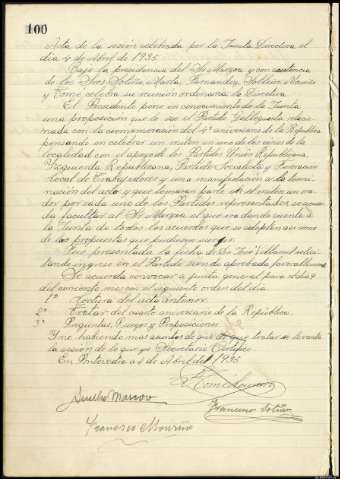 100
Acta de la sesión celebrada por la Junta Directiva el
día 4 de Abril de 1935
Bajo la presidencia del Sr. Marcos y con asistencia
de los Srs. Sotelo, Marta, Fernandez,
y Tomé celebra su reunión ordinaria la Directiva
El Presidente pone en conocimiento de la Junta
una proposición que le hizo el Partido Galleguista relacio
nada con la conmemoración del 4º aniversario de la República
pensando en celebrar un mitin en uno de los cines de la
localidad con el apoyo de los Partidos Unión Republicana,
Izquierda Republicana, Partido Socialista y
Social de Trabajadores y una manifestación a la termi
nación del acto y que tomaran parte en el mitin un ora
dor por cada uno de los Partidos representados se acuer
da facultar al Sr. Marcos el que irá dando cuenta a
la Junta de todos los acuerdos que se adopten así como
de las propuestas que pudieran surgir.
Fué presentada la ficha de Dn. José Villamil solici
tando ingreso en el Partido siendo aprobada por
Se acuerda convocar a junta general para el día 9
del corriente mes con el siguiente orden del día
1º Lectura del acta anterior
2º Tratar del cuarto aniversario de la República
3º Preguntas, Ruegos y Proposiciones
Y no habiendo más asuntos de que tratar se levanta
la sesión de lo que yo Secretario Certifico
En Pontevedra a 4 de Abril de 1935
Francisco Sotelo
Marcos
Francisco Mouriño